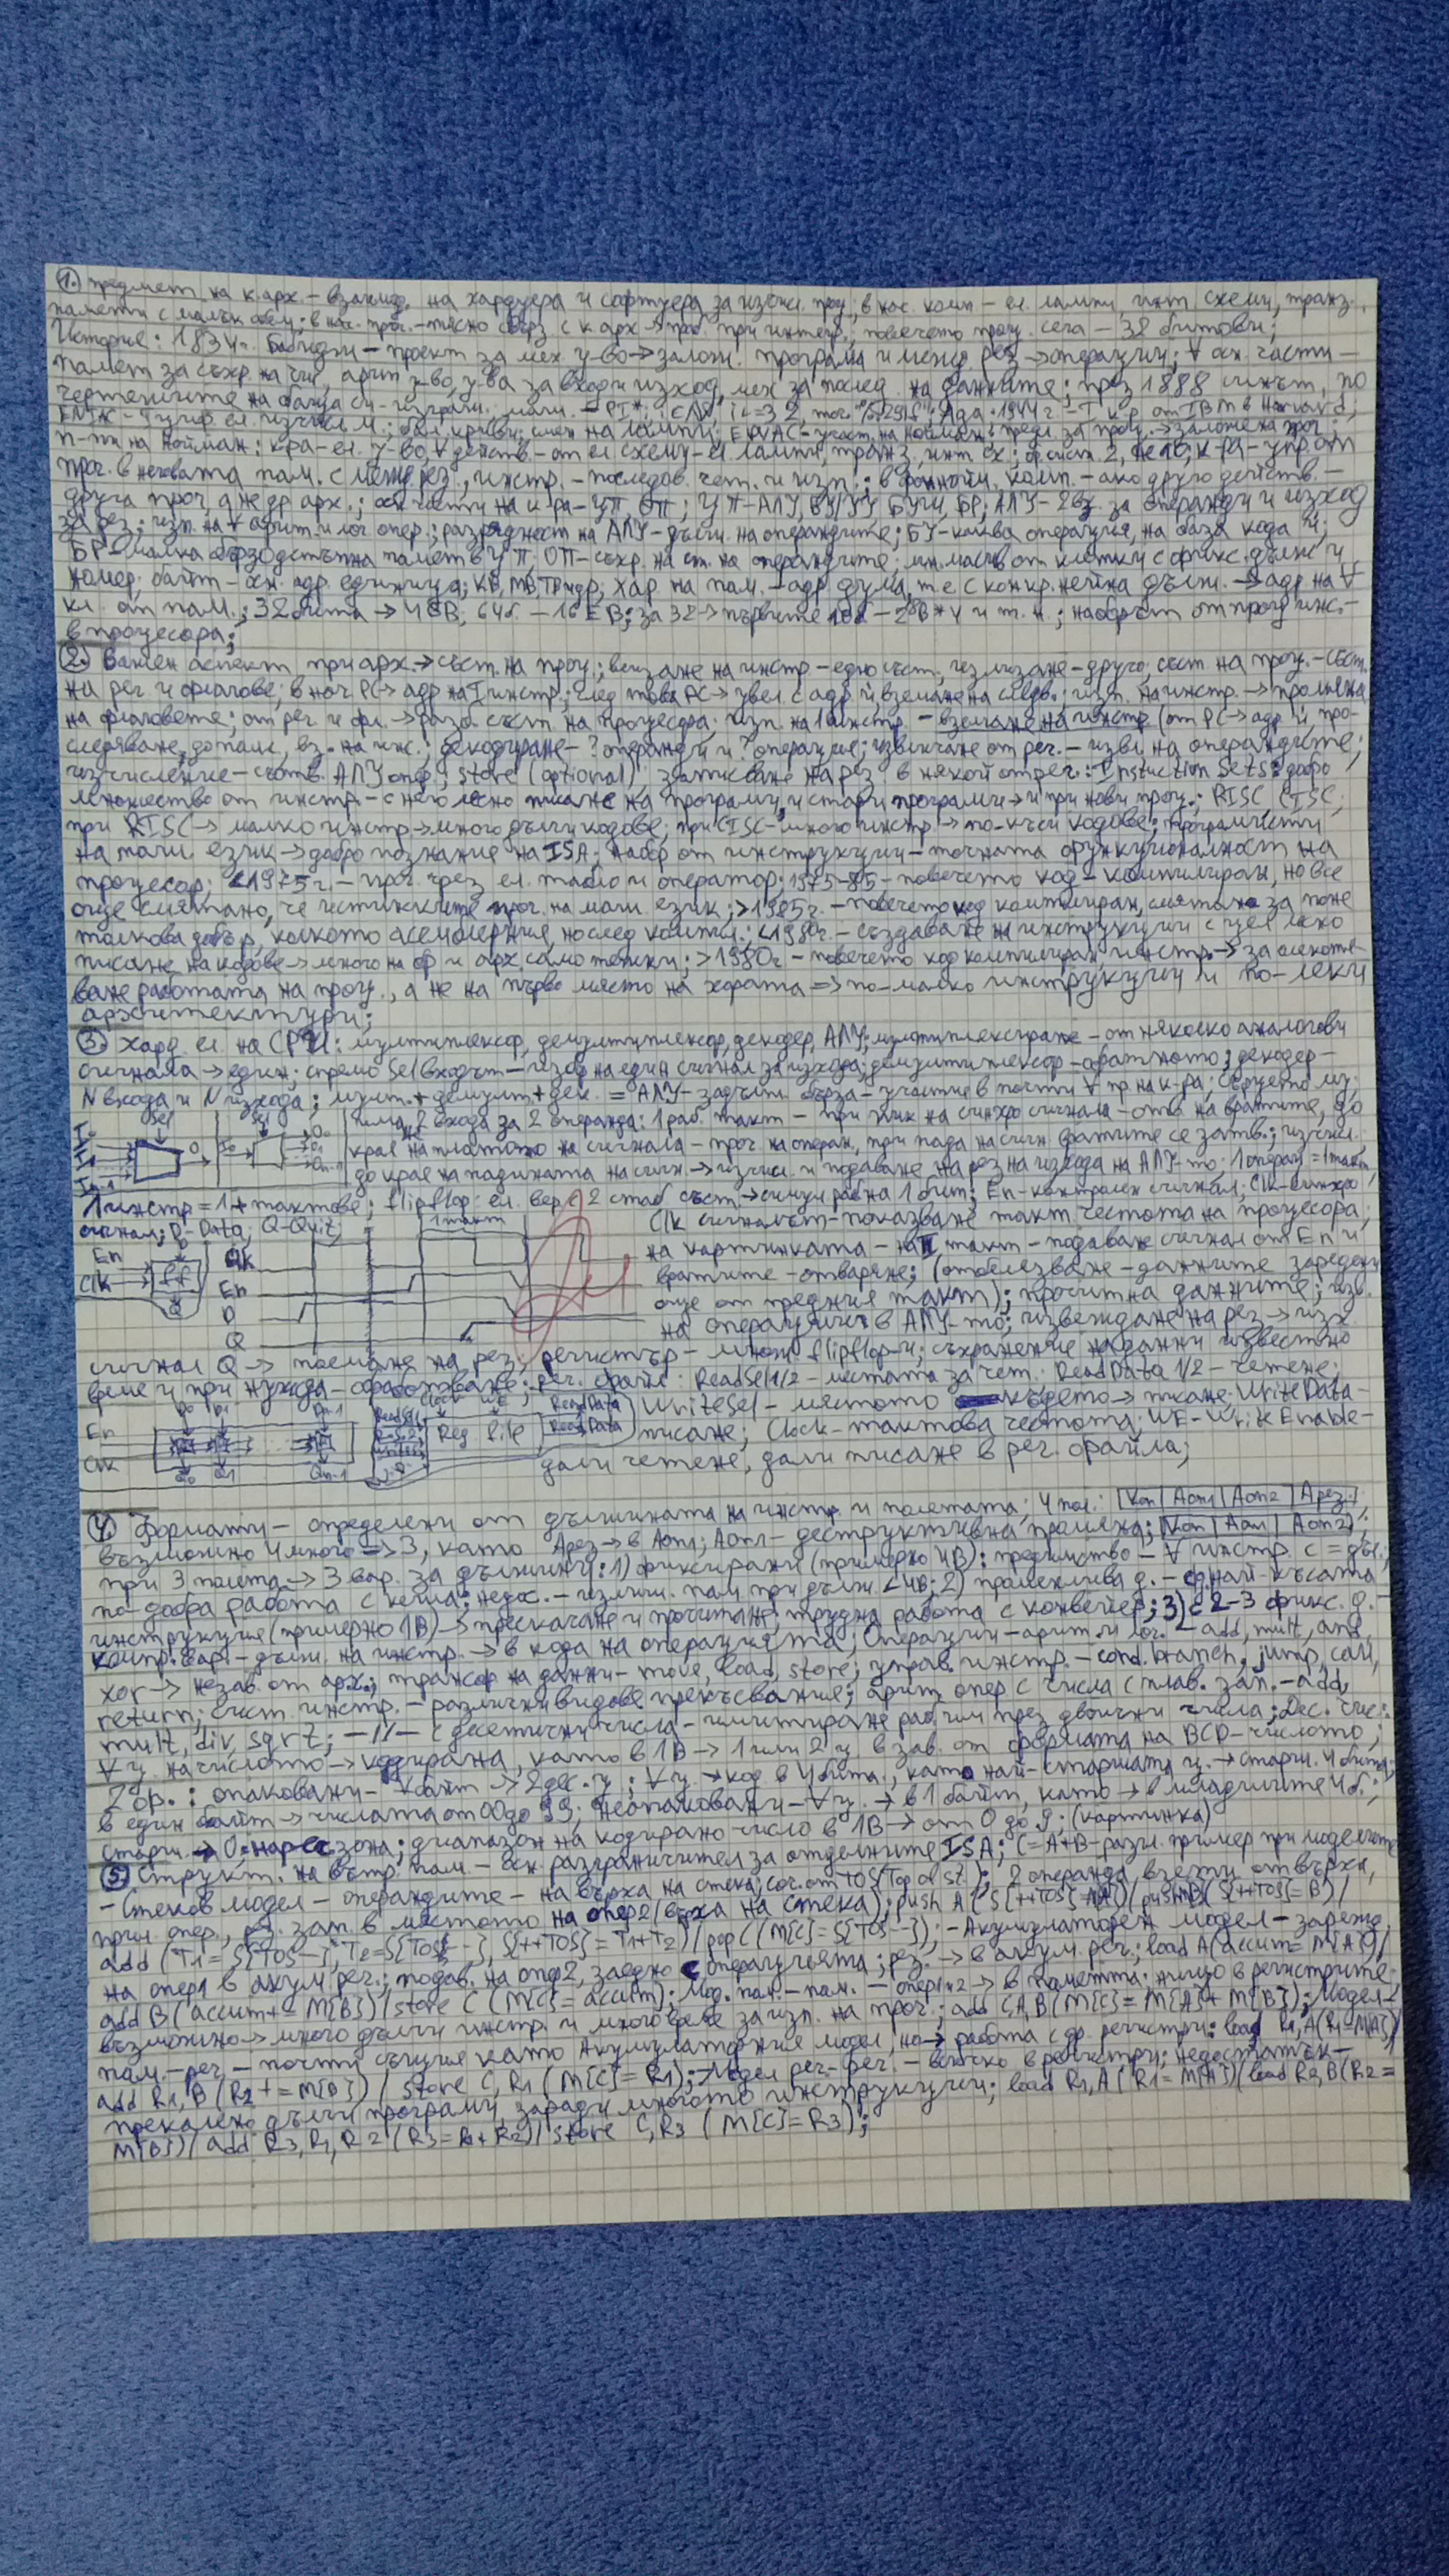 1. предмет на к. арх. – взаимод. на хардуера и софтуера за изчисл. проц.; в нас. комп – ел. лампи, инт. схеми, транз.,
памети с малък обем; в нас. прог. – тясно свърз с к арх → при интерн.; повечето проц. сега – 32 битови;
История: 1834г. Бабидж – проект за мех. у-во → залож. програма и межд. рез → операции; ∀ осн. части –
памет за съхр на чис, арит у-во, у-ва за вход и изход, мех за послед. на данните; през 1888 синът, по
чертежите на баща си – изгражд. маш. – 1944г – I к-р от IBM в Harvard;
п-пи на Нойман: к-ра – ел. у-во, ∀ действ. – от ел схеми – ел лампи, транз, инт сх; бр. сист 2, не 10; к-ра – упр. от
прог. в неговата пам. с межд рез, инстр. – последов. чет. и изп.; в фоннойм. комп. – ако друго действ. –
друга прог, а не др арх.; осн части на к-ра – ЦП, ОП; ЦП – АЛУ, ВУ/УУ БУ и БР; АЛУ – 2вх за операнди и изход
за рез; изп. на ∀ арит. и лог опер.; разрядност на АЛУ – дълж. на операндите; БУ – каква операция, на база кода ѝ;
БР – малка бързодостъпна памет в ЦП, ОП – съхр. на ст. на операндите; лин. масив от клетки с фикс. дълж и
номер; байт – осн. адр. единица; KB, MB, TB и др; хар на пам. – адр дума, т е с конкр. нейна дълж. → адр на ∀
кл. от пам.; 32 бита → 4GB, 64б. – 16EB; за 32 → първите 10б – 2^B*4 и т. н.; наобрът от проц инж. –
в процесора;
2. Важен аспект при арх. → съст. на проц.; влизане на инстр – едно съст, излизане – друго; съст. на проц. – съст.
на рег. и флагове; в нач. PC → адр на I инстр.; след това PC → увел с адр ѝ, вземане на следв.; изп. на инстр. → промяна
на флаговете; от рег. и фл. → разб. съст. на процесора; изп. на 1 инстр. – вземане на инстр (от PC → адр ѝ, про-
следяване до пам., вз. на инс.; декодиране – ? операнди и ? операция; извличане от рег. – извл на операндите;
изчисление – съотв. АЛУ опер.; store (optional) записване на рез в някой от рег.; Instuction Sets: добро
множество от инстр. – с него лесно писане на програми, и стари програми → и при нови проц.; RISC, CISC;
при RISC → малко инстр → много дълги кодове; при CISC – много инстр. → по-къси кодове; програмисти
на маш. език → добро познание на ISA; набор от инструкции – точната функционалност на
процесор; <1975г. – прог. чрез ел. табло и оператор; 1975-85 – повечето код – компилиран, но все
още смятано, че истинските прог. на маш език; >1985г. – повечето код компилиран, смятано за поне
толкова добър, колкото асемблерния, но след компил.; <1980г. – създаване на инструкции с цел лесно
писане на кодове → много на бр и арх. само тежки; >1980г – повечето код компилиран инстр. → за олекотя-
ване работата на проц., а не на първо място на хората => по-малко инструкции и по-леки
архитектури;
3. Хард ел. на CPU: мултиплексор, демултиплексор, декодер, АЛУ; мултиплексиране – от няколко аналогови
сигнала → един; спрямо Sel входът – избор на един сигнал за изхода; демултиплексор – обратното; декодер –
N входа и N изхода; мулт. + демулт + дек. = АЛУ – задълж. бърза – участие в почти ∀ пр. на к-ра; сърцето му;
има 2 входа за 2 операнда: 1 раб. такт – при пик на синхро сигнала – отв на вратите, до
края на платото на сигнала – проч. на операн., при пада на сигн вратите се затв.; изчисл.
до края на падината на сигн → изчисл и подаване на рез на изхода на АЛУ-то; 1 операц = 1 такт,
1 инстр = 1+ тактове; flipflop: ел. вер с 2 стаб съст. → сигн раб на 1 бит; En – контролен сигнал; Clk – синхро
сигнал; D – Data, Q – Quit;
1 такт
En
Clk
D
ff
Q
Clk
En
D
Q
Clk сигналът – показване такт. честота на процесора;
на картинката – на II такт – подаване сигнал от En и
вратите – отваряне; (отбелязване – данните заредени
още от предния такт); прочит на данните; изв.
на операцията в АЛУ-то; извеждане на рез → изх.
сигнал Q → посочване на рез; регистър – множ flipflop-и; съхранение на данни известно
време и при нужда – обработване; рег. файл: ReadSel1/2 – местата за чет. ReadData 1/2 – четене;
WriteSel – мястото където → писане; WriteData –
писане; Clock – тактова честота; WE – Write Enable –
дали четене, дали писане в рег. файла;
En
Clk
Reg file
ReadData
ReadData
4. Формати – определени от дължината на инстр. и полетата; 4 пол.: |Коп|Аоп1|Аоп2|Арез|;
възможно 4 много => 3, като Арез → в Аоп1; Аоп1 – деструктивна промяна; |Коп|Аоп1|Аоп2|;
при 3 полета → 3 вар. за дължини: 1) фиксирани (примерно 4B): предимство – ∀ инстр. с = дъл.;
по-добра работа с кеша; недос. – излиш. пам при дълж <4B; 2) променлива д. – с най-късата
инструкция (примерно 1B) → прескачане и прочитане, трудна работа с конвейер; 3) с 2-3 фикс. д. –
компр. вар. – дълж. на инстр. → в кода на операцията; Операции – арит. и лог. – add, mult, and,
xor → незав. от арх.; трансфер на данни – move, load, store; управ. инстр. – cond. branch, jump, call,
return; сист инстр. – различни видове прекъсвания; арит. опер с числа с плав. зап. – add,
mult, div, sqrt; –//– с десетични числа – имитиране работи през двоични числа; Dec. чис.:
∀ ц. на числото → кодирана, като в 1B → 1 или 2 ц. в зав. от формата на BCD-числото;
2 ф.: опаковани – ∀ байт → 2 дес. ц.; ∀ ц. → код в 4 бита, като най-старшата ц. → старш. 4 бита,
в един байт → числата от 00 до 99; неопаковани – ∀ ц. → в 1 байт, като → в младшите 4 б.;
старш. → 0 – нар се зона; диапазон на кодирано число в 1B → от 0 до 9; (картинка)
5. Структ. на вътр. пам. – осн. разграничител за отделните ISA; C=A+B – разгл. пример при моделите
– Стеков модел – операндите – на върха на стека, соч. от TOS (Top of st.); 2 операнда, взети от върха,
при опер., рез. зап. в мястото на опер2 (върха на стека); push A (S[++TOS]=A)/ push B (S[++TOS]=B)/
add (T1 = S[TOS--], T2 = S[TOS--], S[++TOS] = T1+T2)/ pop C (M[C] = S[TOS--]); – Акумулаторен модел – зарежд.
на опер1 в акум. рег.; подав. на опер2, заедно с операцията; рез. → в акум. рег.; load A (accum = M[A])/
add B (accum += M[B])/ store C (M[C] = accum); Мод. пам. – пам. – опер1 и 2 → в паметта; нищо в регистрите;
възможно → много дълги инстр. и много време за изп. на прог.; add C,A,B (M[C] = M[A] + M[B]); Модел
пам. – рег. – почти същия като Акумулаторния модел, но → работа с др. регистри: load R1,A (R1 = M[A])/
add R1, B (R2 += M[B]) / store C, R1 (M[C] = R1); – Модел рег. – рег. – всичко в регистри; недостатък –
прекалено дълги програми, заради многото инструкции; load R1, A (R1 = M[A])/ load R2, B (R2 =
M[B])/ add R3, R1, R2 (R3 = R1 + R2)/ store C, R3 (M[C] = R3);